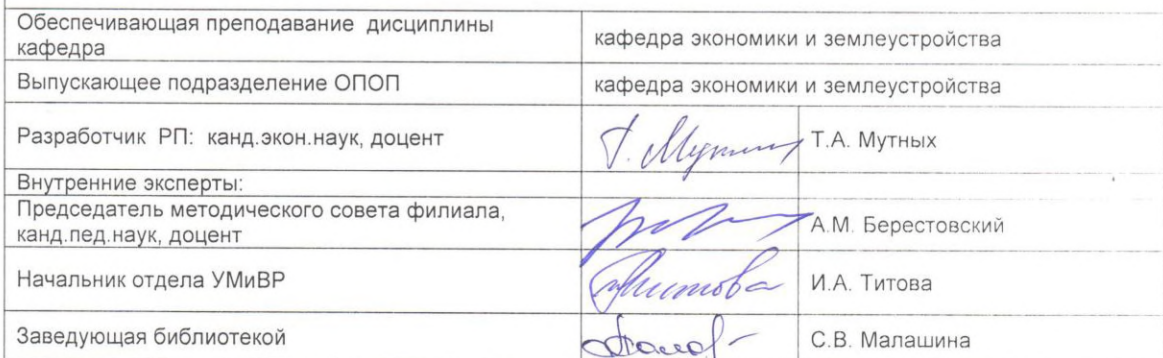 Обеспечивающая преподавание дисциплины
кафедра
кафедра экономики и землеустройства
Выпускающее подразделение ОПОП
кафедра экономики и землеустройства
Разработчик РП: канд.экон.наук, доцент
Т.А. Мутных
Внутренние эксперты:
Председатель методического совета филиала,
канд.пед.наук, доцент
А.М. Берестовский
Начальник отдела УМиВР
И.А. Титова
Заведующая библиотекой
С.В. Малашина